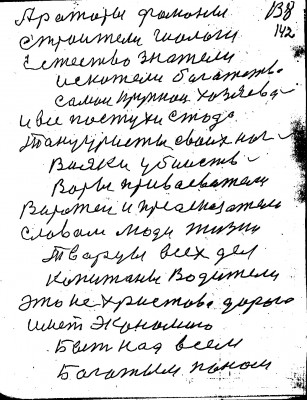 Араторы фамоны 138
142
Строители геологи
Естество знатели
искатели богатств
самои крупной хозяева
и все пастухи стада
Танцуристы своих ног
Вояки убииств
Воры приваеватели
Варатеи и предсказатели
Словам люди жизни
Творцы всех дел
Капитаны Водители
Это не христова дорога
имет Экономию
Бьет над всем
Богатым паном